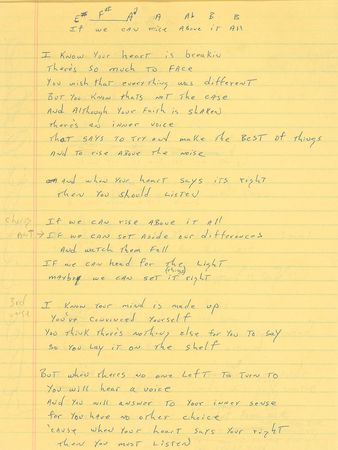 E# F# A# A Ab B B
If we can rise above it all
I know your heart is breakin
There's so much to face
You wish that everything was different
But you know thats not the case
And although your faith is shaken
there's an inner voice
that says to try and make the best of things
and to rise above the noise
And when your heart says its right
then you should listen
If we can rise above it all
If we can set aside our differences
And watch them fall
If we can head for the light
maybe we can set (things) it right
3rd verse
I know your mind is made up
You've convinced yourself
You think there's nothing else for you to say
so you lay it on the shelf
But when theres no one left to turn to
You will hear a voice
And you will answer to your inner sense
for you have no other choice
'cause when your heart says your right
then you must listen